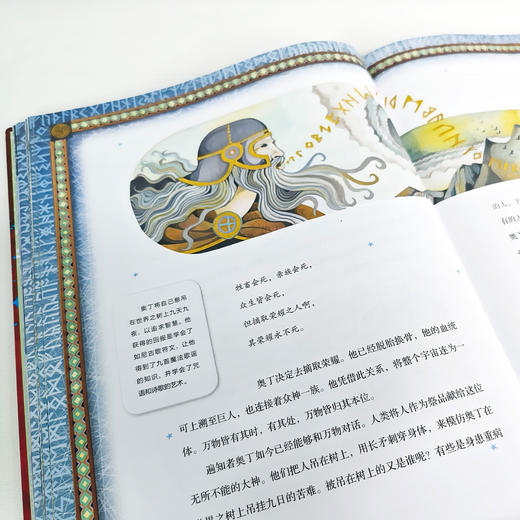 牲畜会死，亲族会死，
众生皆会死，
但摘取荣耀之人啊，
其荣耀永不死。
奥丁将自己悬吊
在世界之树上九天九
夜，以追求智慧。他
获得的回报是学会了
如尼古歌符文，让他
得到了九首魔法歌谣
的知识，并学会了咒
语和诗歌的艺术。
奥丁决定去摘取荣耀。他已经脱胎换骨，他的血统
可上溯至巨人，也连接着众神一族。他凭借此关系，将整个宇宙连为一
体。万物皆有其时，有其处，万物皆归其本位。
遍知者奥丁如今已经能够和万物对话。人类将人作为祭品献给这位
无所不能的大神。他们把人吊在树上，用长矛刺穿身体，来模仿奥丁在
世界之树上吊挂九日的苦难。被吊在树上的又是谁呢？有些是身患重病
的人，
有的人
奥丁